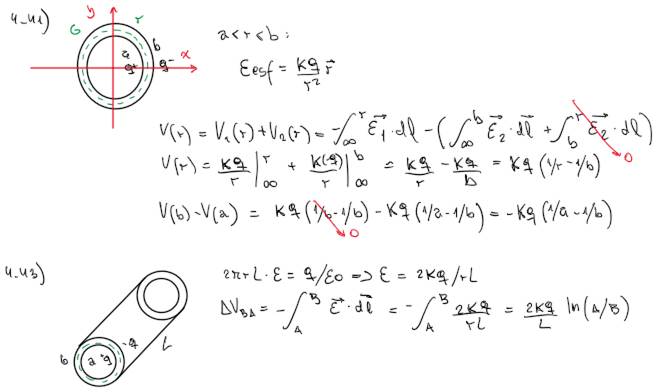 4-41)
y
G
r
a < r < b :
b
a
q+
q-
x
Eesf = kq/r² r⃗
V(r) = V₁(r) + V₂(r) = -∫∞^r E⃗₁·dl - (∫∞^b E⃗₂·dl⃗ + ∫b^r E⃗₂·dl⃗) 0
V(r) = kq/r |∞^r + k(-q)/r |∞^b = kq/r - kq/b = kq (1/r - 1/b)
V(b) - V(a) = kq (1/b - 1/b) - kq (1/a - 1/b) = -kq (1/a - 1/b)
0
4-43)
2πrL·E = q/ε0 => E = 2kq/rL
ΔVBA = -∫A^B E⃗·dl⃗ = -∫A^B 2kq/rL = 2kq/L ln(A/B)
b
a
+q
-q
L